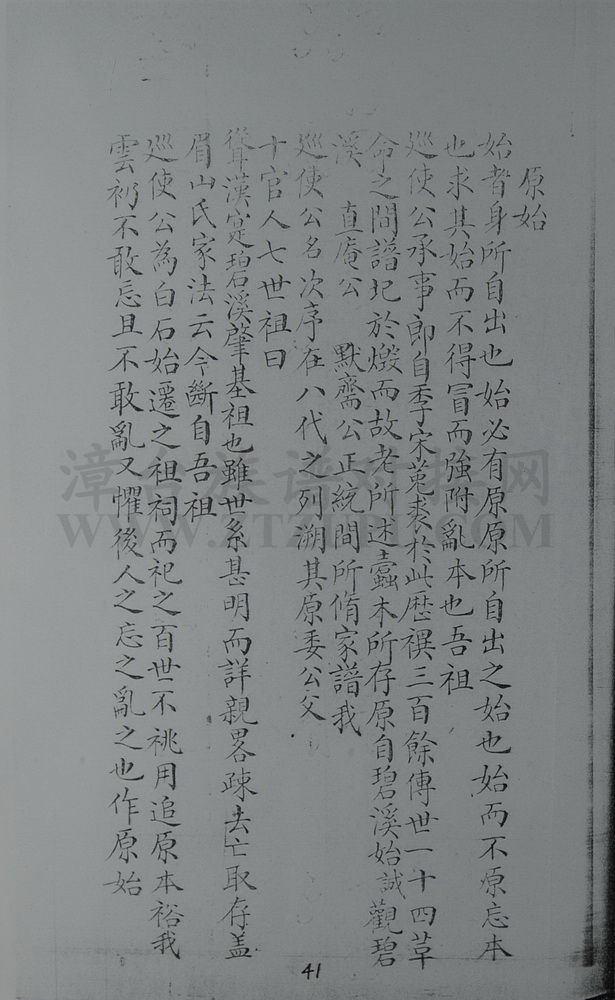 原始
始者身所自出也始必有原原所自出之始也始而不原忘本
也求其始而不得冒而強附亂本也吾祖
巡使公承事郎自季宋菟裘於此歷禩三百餘傳世一十四草
命之間譜圮於燬而故老所述蠹本所存原自碧溪始誠觀碧
溪 直庵公 默齋公正統間所脩家譜我
巡使公名次序在八代之列溯其原委公父
十官人七世祖曰
聳漢寔碧溪肇基祖也雖世系甚明而詳親畧疎去亡取存盖
眉山氏家法云今斷自吾祖
巡使公為白石始遷之祖祠而祀之百世不祧用追原本裕我
雲礽不敢忘且不敢亂又懼後人之忘之亂之也作原始
41